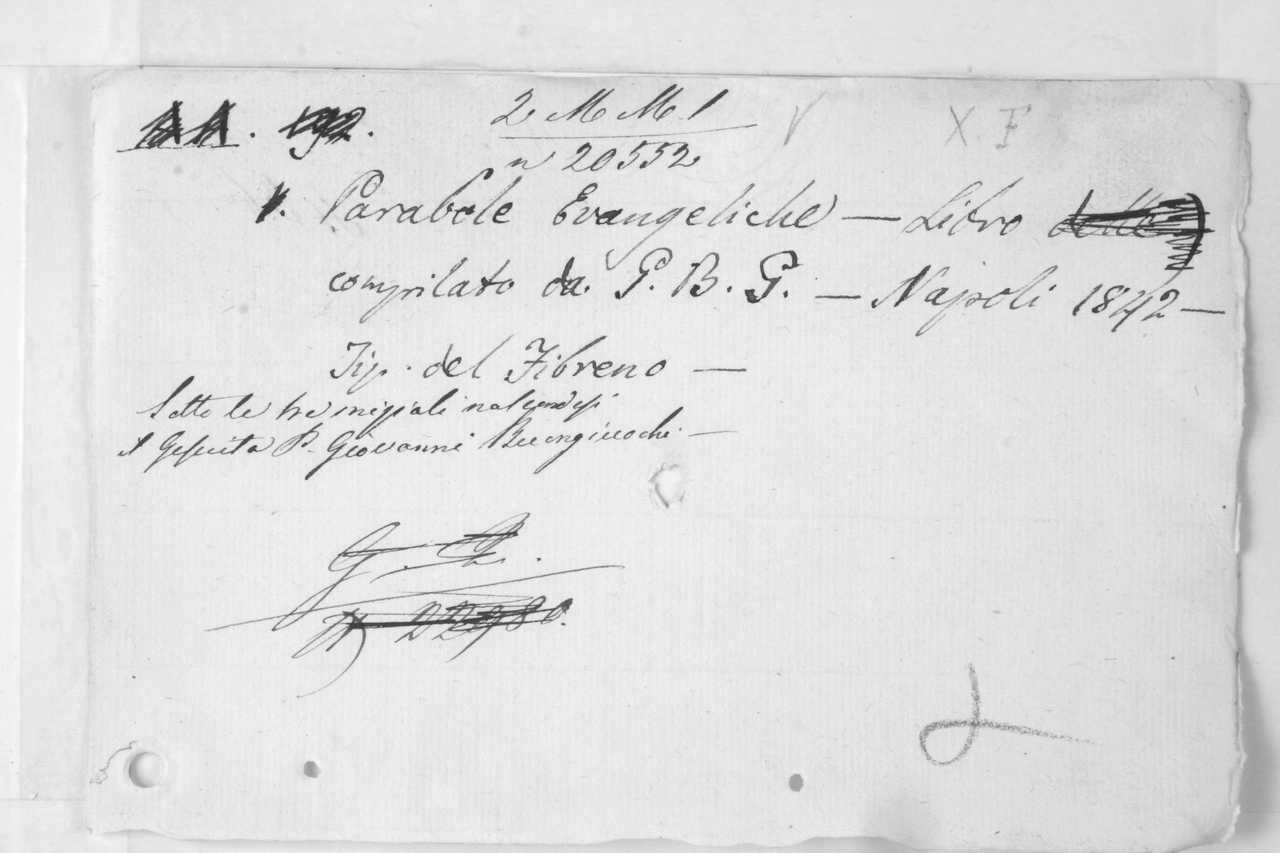 2 M M. 1
n 20552
V X. F
1. Parabole Evangeliche — Libro
compilato da P. B. G. — Napoli 1842 —
Tip. del Fibreno —
Sotto le tre iniziali
il Gesuita P. Giovanni Buongiuochi —